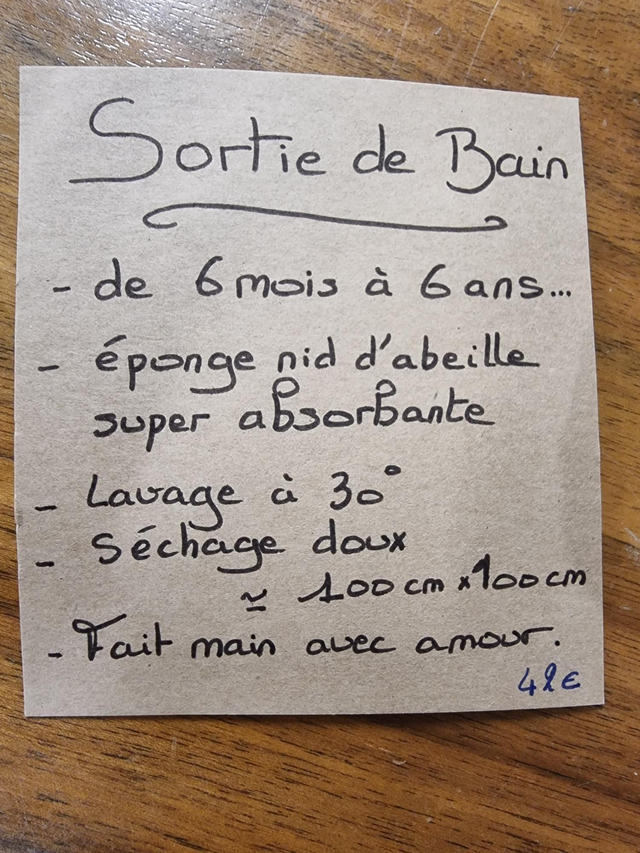 Sortie de Bain
- de 6 mois à 6 ans...
- éponge nid d'abeille
super absorbante
- Lavage à 30°
- Séchage doux
≃ 100 cm x 100 cm
- Fait main avec amour.
42€